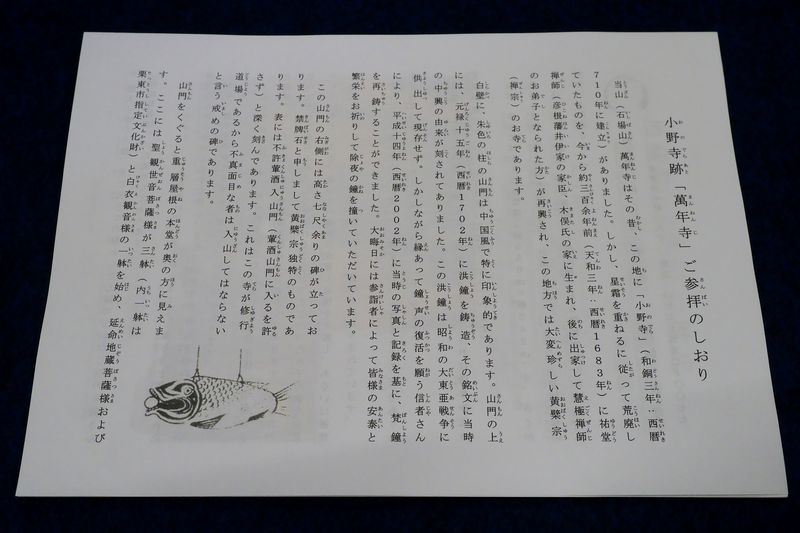 小野寺跡「萬年寺」ご参拝のしおり
当山（石場山）萬年寺はその昔、この地に「小野寺」（和銅三年：西暦
710年に建立）がありました。しかし、星霜を重ねるに従って荒廃し
ていたものを、今から約三百余年前（天和三年：西暦1683年）に祐堂
禅師（彦根藩井伊家の家臣、木俣氏の家に生まれ、後に出家して慧極禅師
のお弟子となられた方）が再興され、この地方では大変珍しい黄檗宗
（禅宗）のお寺であります。
白壁に、朱色の柱の山門は中国風で特に印象的であります。山門の上
には、元禄十五年（西暦1702年）に洪鐘を鋳造、その銘文に当時
の中興の由来が刻されてありました。この洪鐘は昭和の大東亜戦争に
供出して現存せず。しかしながら縁あって鐘声の復活を願う信者さん
により、平成十四年（西暦2002年）に当時の写真と記録を基に、梵鐘
を再鋳することができました。大晦日には参詣者によって皆様の安泰と
繁栄をお祈りして除夜の鐘を撞いていただいています。
この山門の右側には高さ七尺余りの碑が立ってお
ります。禁牌石と申しまして黄檗宗独特のものであ
ります。表には不許葷酒入山門（葷酒山門に入るを許
さず）と深く刻んであります。これはこの寺が修行
道場であるから不真面目な者は入山してはならない
と言う戒めの碑であります。
山門をくぐると重層屋根の本堂が奥の方に見えま
す。ここには聖観世音菩薩様が三躰（内一躰は
栗東市指定文化財）と白衣観音様の一躰を始め、延命地蔵菩薩様および